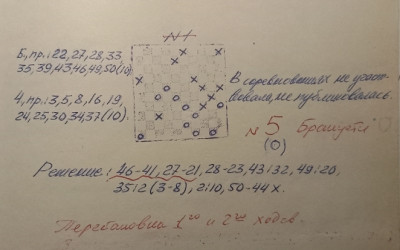 N1
Б, пр.: 22, 27, 28, 33,
35, 39, 43, 46, 49, 50 (10).
Ч, пр.: 3, 5, 8, 16, 19,
24, 25, 30, 34, 37 (10).
В соревнованиях не участ-
вовала, не публиковалась.
N 5
(0)
Решение: 46-41, 27-21, 28-23, 43:32, 49:20,
35:2 (3-8), 2:10, 50-44 x.
Перестановка 1го и 2го ходов.